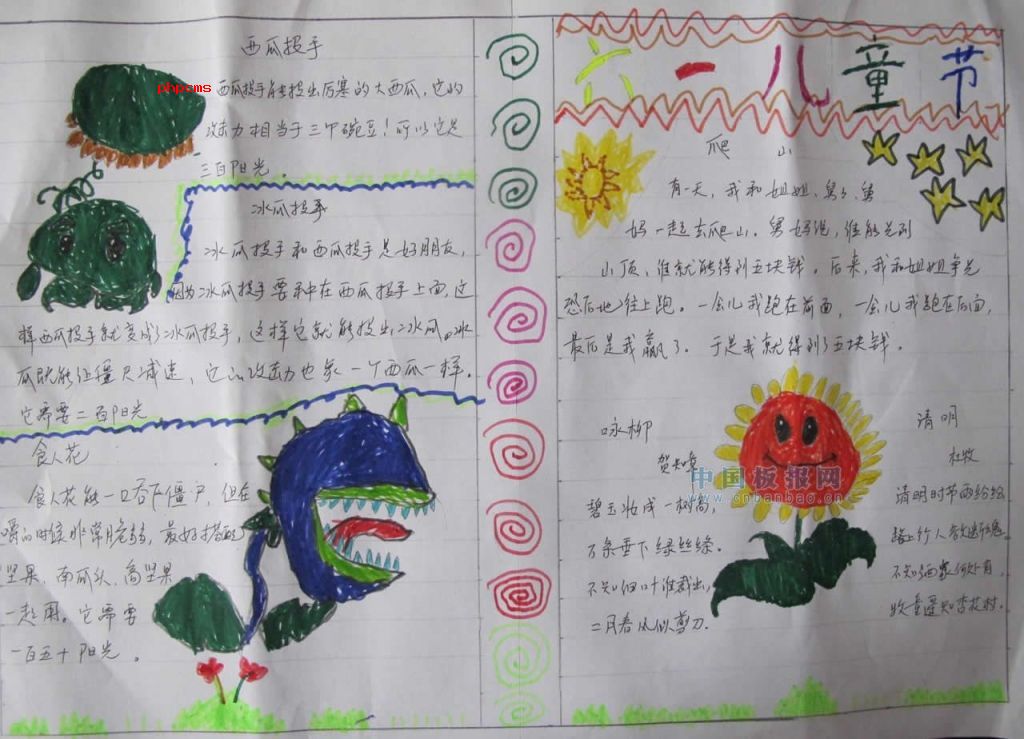 西瓜投手
phpcms
西瓜投手能投出厉害的大西瓜,它的
攻击力相当于三个碗豆!可以它是
三百阳光。
冰瓜投手
冰瓜投手和西瓜投手是好朋友,
因为冰瓜投手要种在西瓜投手上面,这
样西瓜投手就变成了冰瓜投手,这样它就能投出冰瓜。冰
瓜既能让僵尸减速,它的攻击力也象一个西瓜一样。
它需要二百阳光
食人花
食人花能一口吞下僵尸,但在
嚼的时候非常脆弱,最好搭配
坚果、南瓜头、高坚果
一起用。它需要
一百五十阳光。
六一儿童节
爬山
有一天,我和姐姐、舅舅、舅
妈一起去爬山。舅妈说,谁能先到
山顶、谁就能得到五块钱。后来,我和姐姐争先
恐后地往上跑。一会儿我跑在前面,一会儿我跑在后面,
最后是我赢了。于是我就得到了五块钱。
咏柳
贺知章
碧玉妆成一树高,
万条垂下绿丝绦。
不知细叶谁裁出,
二月春风似剪刀.
清明
杜牧
清明时节雨纷纷
路上行人欲断魂
不知酒家何处有
牧童遥知杏花村.
中国板报网
www.cnbanbao.cn